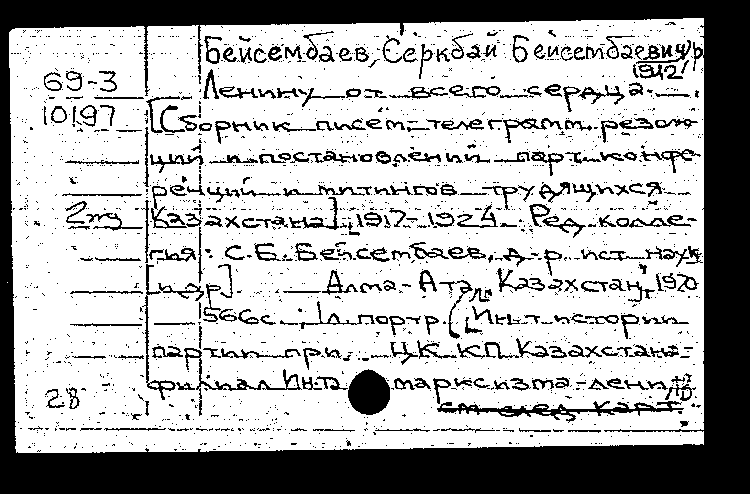 Бейсембаев, Серкбай Бейсембаевич/р
1912/
69-3
Ленину от всего сердца.
10197
[Сборник писем, телеграмм, резолю-
ций и постановлений парт. конфе-
ренций и митингов трудящихся
Казахстана], 1917-1924. Ред. колле-
гия: С.Б. Бейсембаев, д-р ист. наук
[и др]. Алма-Ата, "Казахстан", 1970
566с.; 1 л. портр. (Ин-т истории
партии при ЦК КП Казахстана-
филиал Ин-та марксизма-лени-
28
см след карт.